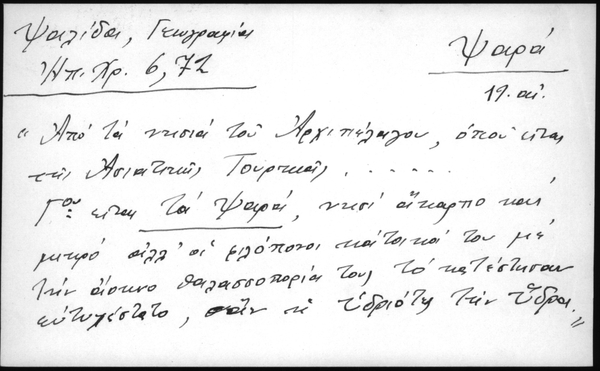 Ψαλίδα, Γεωγραφία
Ἠπ. Χρ. 6, 72
Ψαρά
19. αἰ.
" Ἀπό τά νησιά τοῦ Ἀρχιπελάγου, ὁπού εἶναι
τῆς Ἀσιατικῆς Τουρκιᾶς . . . . . .
Γον εἶναι τά Ψαρά, νησί ἄκαρπο καί
μικρό ἀλλ' οἱ φιλόπονοι κάτοικοί του μέ
τήν ἄοκνο θαλασσοπορία τους τό κατέστησαν
εὐτυχέστατο, σάν κι ὑδριότες τήν Ὕδρα. "